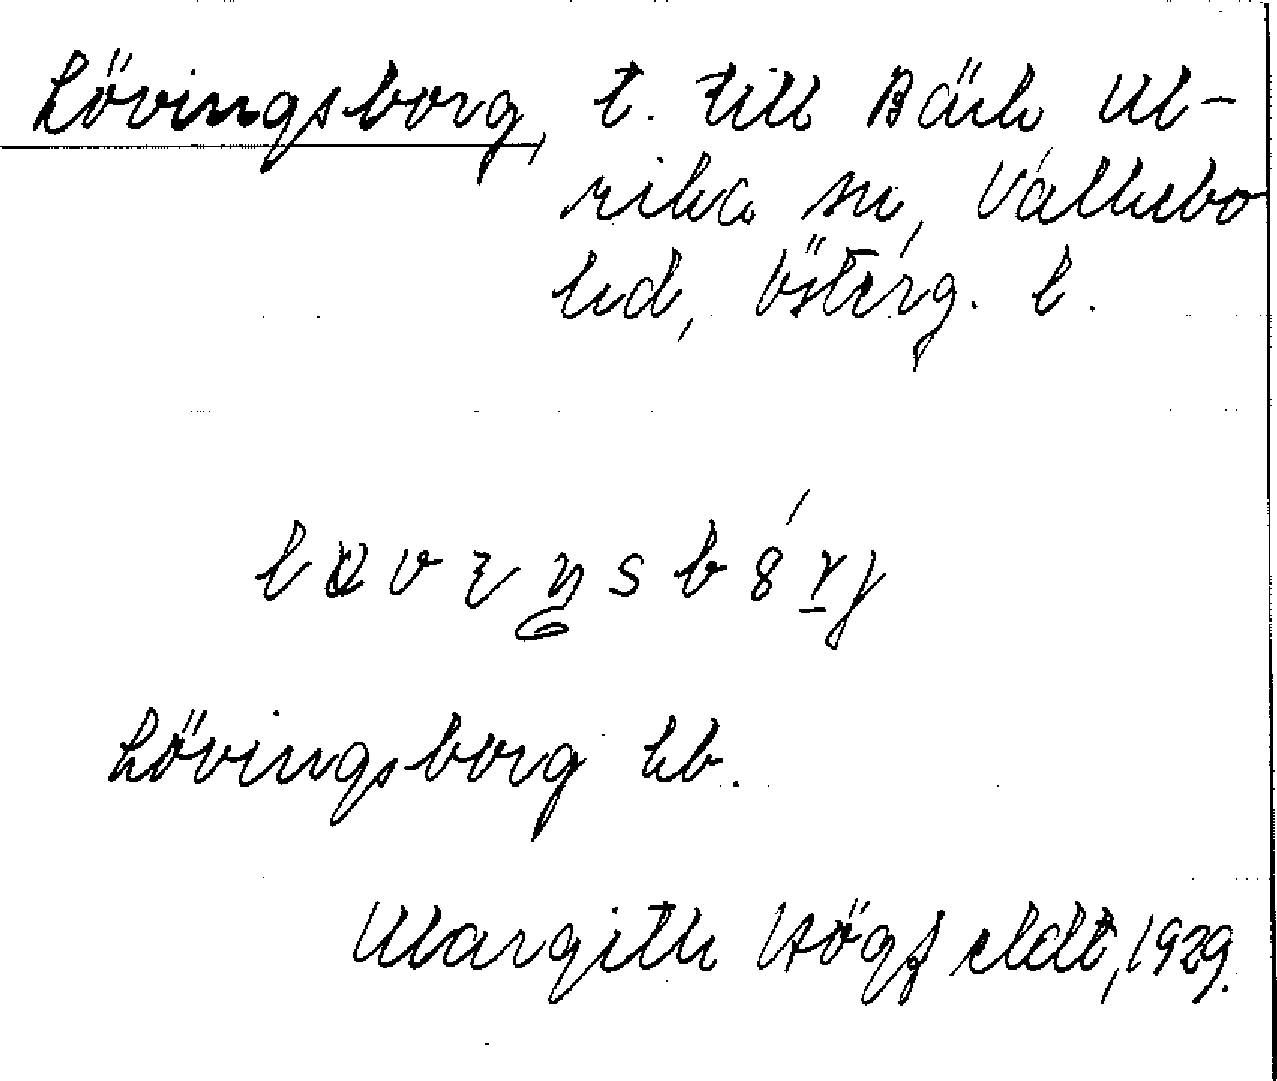 Lövingsborg, t. till Bäck Ul-
rika sn, Valkebo
hd, Österg. l.
Lövingsborg kb.
Margith Högfeldt, 1929.